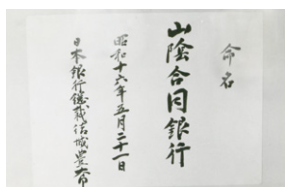 命名
山陰合同銀行
昭和十六年五月二十一日
日本銀行總裁結城豊太郎